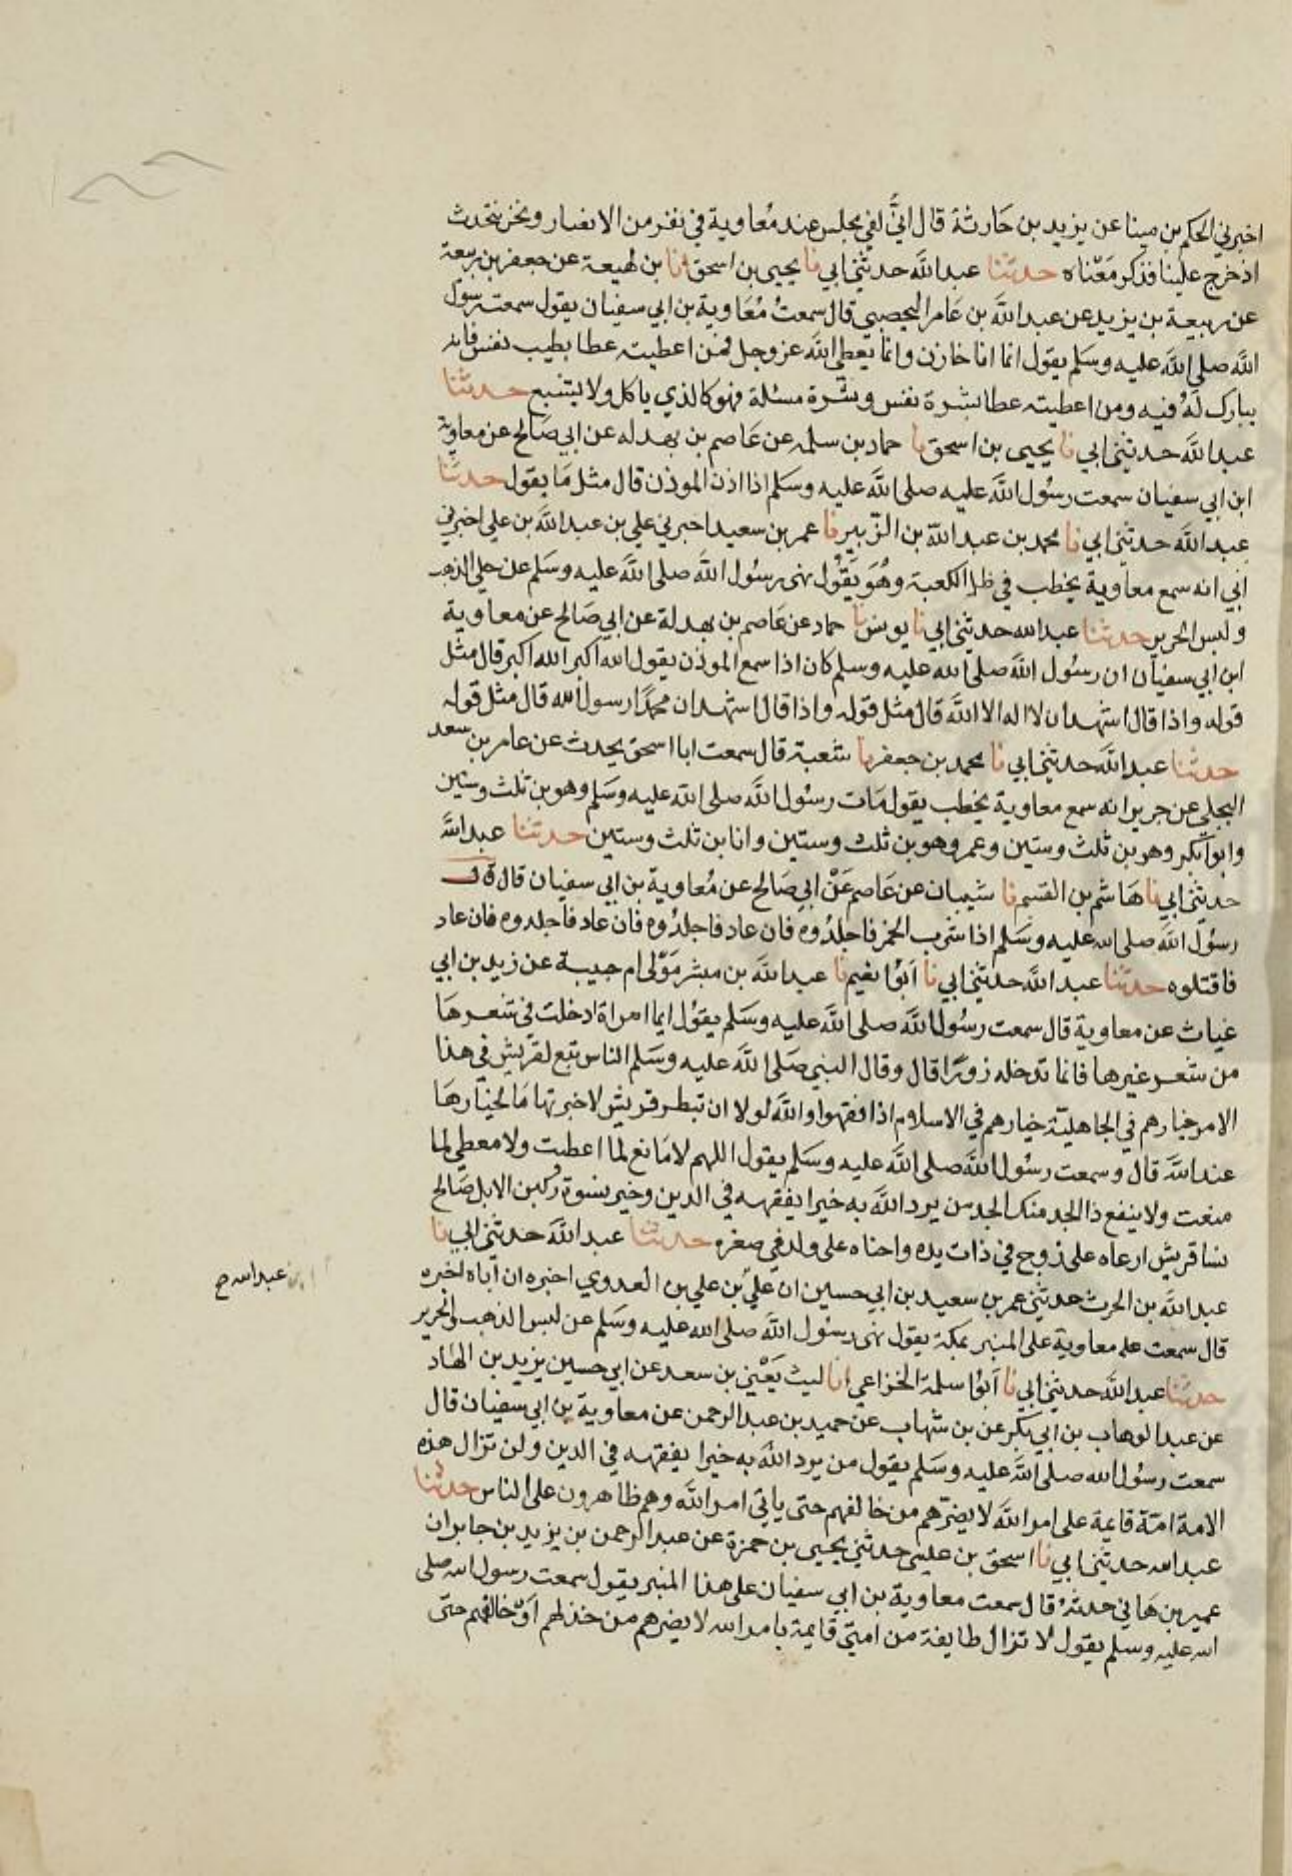 اخبرني الحكم بن مينا عن يزيد بن حَارثة قال انيّ لفي مجلس عند مُعاوية في نفر من الانصار ونحن نتحدث
اذ خرج علينا فذكر مَعْناه حدثنا عبد الله حدثني ابي نا يحيى بن اسحق انا بن لهيعة عن جعفر بن ربيعة
عن ربيعة بن يزيد عن عبد الله بن عَامر اليحصبي قال سمعتُ مُعَاوية بن ابي سفيان يقول سمعت رسول
الله صلى الله عليه وسَلم يقول انما انا خازن وانما يعطي الله عز وجل فمن اعطيته عطا بطيب نفس فانه
يبارك لَهُ فيه ومن اعطيته عطا بشرة نفس وشرة مسئلة فهو كالذي ياكل ولا يشبع حدثنا
عبد الله حدثني ابي نا يحيى بن اسحق نا حماد بن سلمه عن عَاصم بن بهدله عن ابي صَالح عن معاوية
ابن ابي سفيان سمعت رسُول الله عليه صلى الله عليه وسَلم اذا اذن الموذن قال مثل مَا يقول حدثنا
عبد الله حدثني ابي نا محمد بن عبد الله بن الزّبير نا عمر بن سعيد اخبرني علي بن عبد الله بن علي اخبرني
ابي انه سمع معاوية يخطب في ظل الكعبة وهُوَ يَقُول نهى رسُول الله صلى الله عليه وسَلم عن حلي الذهب
ولبس الحرير حدثنا عبد الله حدثني ابي نا يونس نا حماد عن عَاصم بن بهدلة عن ابي صَالح عن معاوية
ابن ابي سفيان ان رسُول الله صلى الله عليه وسلم كان اذا سمع الموذن يقول الله اكبر الله اكبر قال مثل
قوله واذا قال اشهد ان لا اله الا الله قال مثل قوله واذا قال اشهد ان محمدًا رسول الله قال مثل قوله
حدثنا عبد الله حدثني ابي نا محمد بن جعفر نا شعبة قال سمعت ابا اسحق يحدث عن عامر بن سعد
البجلي عن جرير انه سمع معاوية يخطب يقول مَات رسُول الله صلى الله عليه وسَلم وهو بن ثلث وستين
وابو بكر وهو بن ثلث وستين وعمر وهو بن ثلث وستين وانا بن ثلث وستين حدثنا عبد الله
حدثني ابي نا هَاشم بن القسم نا شيبان عن عَاصم عَنْ ابي صَالح عن مُعاوية بن ابي سفيان قال قال
رسُول الله صلى الله عليه وسَلم اذا شرب الخمر فاجلدُوه فان عاد فاجلدُوه فان عاد فاجلدوه فان عاد
فاقتلوه حدثنا عبد الله حدثني ابي نا اَبوُا نعيم نا عبد الله بن مبشر مَوْلى ام حبيبة عن زيد بن ابي
غياث عن معاوية قال سمعت رسُول الله صلى الله عليه وسَلم يقوُل ايما امراة ادخلت في شعرهَا
من شعر غيرها فانما تدخله زورًا قال وقال النبي صَلى الله عليه وسَلم الناس تبع لقريش في هذا
الامر خيارهم في الجاهلية خيارهم في الاسلام اذا فقهوا والله لولا ان تبطر قريش لاخبرتها مَا لخيارهَا
عند الله قال وسمعت رسُول الله صلى الله عليه وسَلم يقول اللهم لا مَانع لما اعطيت ولا معطي لما
منعت ولا ينفع ذا الجد منك الجد من يرد الله به خيرا يفقهه في الدين وخير نسوة ركبن الابل صَالح
نسا قريش ارعاه على زوج في ذات يده واحناه على ولد في صغره حدثنا عبد الله حدثني ابي نا
عبد الله ح
عبد الله بن الحرث حدثني عمر بن سعيد بن ابي حسين ان علي بن علي بن العدوي اخبره ان اَباه اخبره
قال سمعت معاوية على المنبر بمكة يقول نهى رسُول الله صلى الله عليه وسَلم عن لبس الذهب والحرير
حدثنا عبد الله حدثني ابي نا اَبوُا سلمة الخزاعي انا ليث يَعْني بن سعد عن ابي حسين يزيد بن الهاد
عن عبد الوهاب بن ابي بكر عن بن شهاب عن حميد بن عبد الرحمن عن معاوية بن ابي سفيان قال
سمعت رسُول الله صلى الله عليه وسَلم يقول من يرد الله به خيرا يفقهه في الدين ولن تزال هذه
الامة امّة قايمة على امر الله لا يضرّهم من خالفهم حتى ياتي امر الله وهم ظاهرون على الناس حدثنا
عبد الله حدثني ابي نا اسحق بن عيسى حدثني يحيى بن حمزة عن عبد الرحمن بن يزيد بن جابر ان
عمير بن هَاني حدثهُ قال سمعت معاوية بن ابي سفيان على هذا المنبر يقول سمعت رسول الله صلى
الله عليه وسلم يقول لا تزال طايفة من امتي قايمة بامر الله لا يضرهم من خذلهم اوْ خالفهم حتى